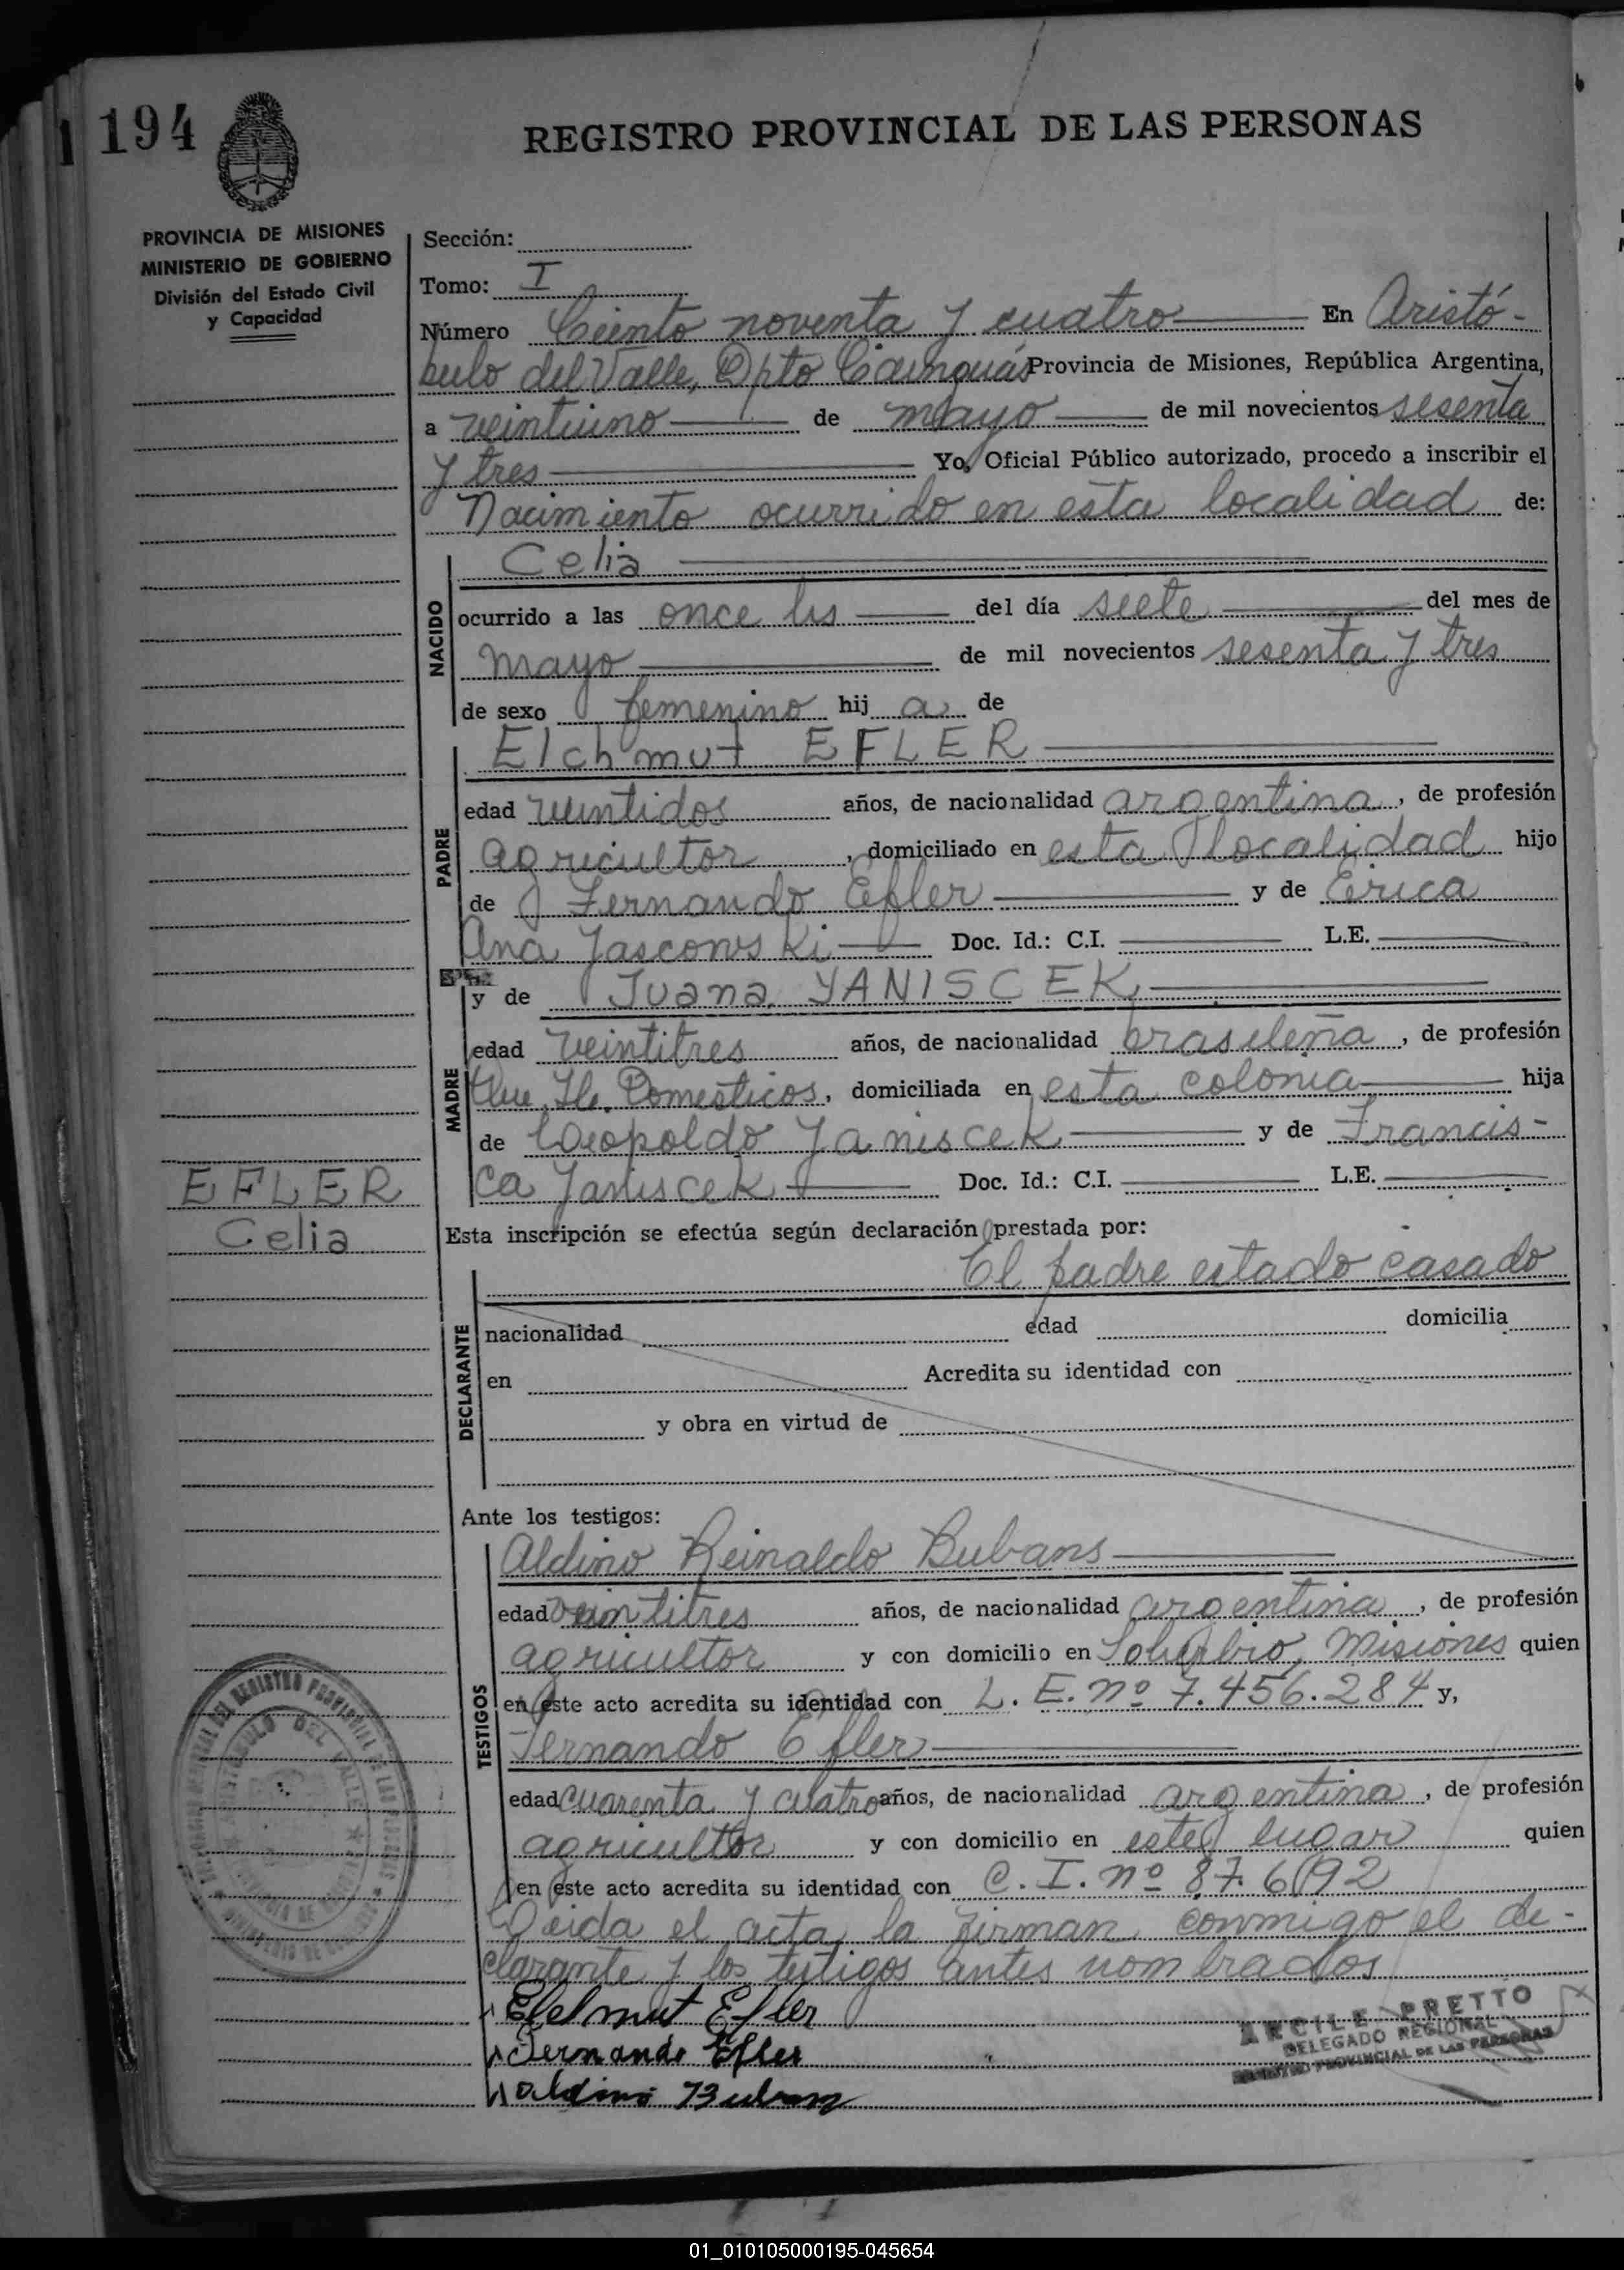 194
REGISTRO PROVINCIAL DE LAS PERSONAS
PROVINCIA DE MISIONES
MINISTERIO DE GOBIERNO
División del Estado Civil
y Capacidad
Sección:
Tomo: I
Número Ciento noventa y cuatro En Aristó-
bulo del Valle, Dpto Cainguás Provincia de Misiones, República Argentina,
a veintiuno de mayo de mil novecientos sesenta
y tres Yo, Oficial Público autorizado, procedo a inscribir el
Nacimiento ocurrido en esta localidad de:
NACIDO
Celia
ocurrido a las once hs del día siete del mes de
mayo de mil novecientos sesenta y tres
de sexo femenino hij a de
PADRE
Elchmut EFLER
edad veintidos años, de nacionalidad argentina, de profesión
agricultor, domiciliado en esta localidad hijo
de Fernando Efler y de Erica
Ana Jasconski Doc. Id.: C.I. L.E.
MADRE
y de Juana YANISCEK
edad veintitres años, de nacionalidad brasileña, de profesión
Domesticos, domiciliada en esta colonia hija
de Leopoldo Janiscek y de Francis-
ca Janiscek Doc. Id.: C.I. L.E.
EFLER
Celia
Esta inscripción se efectúa según declaración prestada por:
El padre estado casado
DECLARANTE
nacionalidad edad domicilia
en Acredita su identidad con
y obra en virtud de
Ante los testigos:
TESTIGOS
Aldino Reinaldo Bubans
edad veintitres años, de nacionalidad argentina, de profesión
agricultor y con domicilio en Soberbio, Misiones quien
en este acto acredita su identidad con L. E. nº 7.456.284 y,
Fernando Efler
edad cuarenta y cuatro años, de nacionalidad argentina, de profesión
agricultor y con domicilio en este lugar quien
en este acto acredita su identidad con C. I. nº 87.692
Leida el acta, la firman conmigo el de-
clarante y los testigos antes nombrados
Elelmut Efler
Fernando Efler
Aldino Bubans
ARCILE PRETTO
DELEGADO REGIONAL
REGISTRO PROVINCIAL DE LAS PERSONAS
01_010105000195-045654